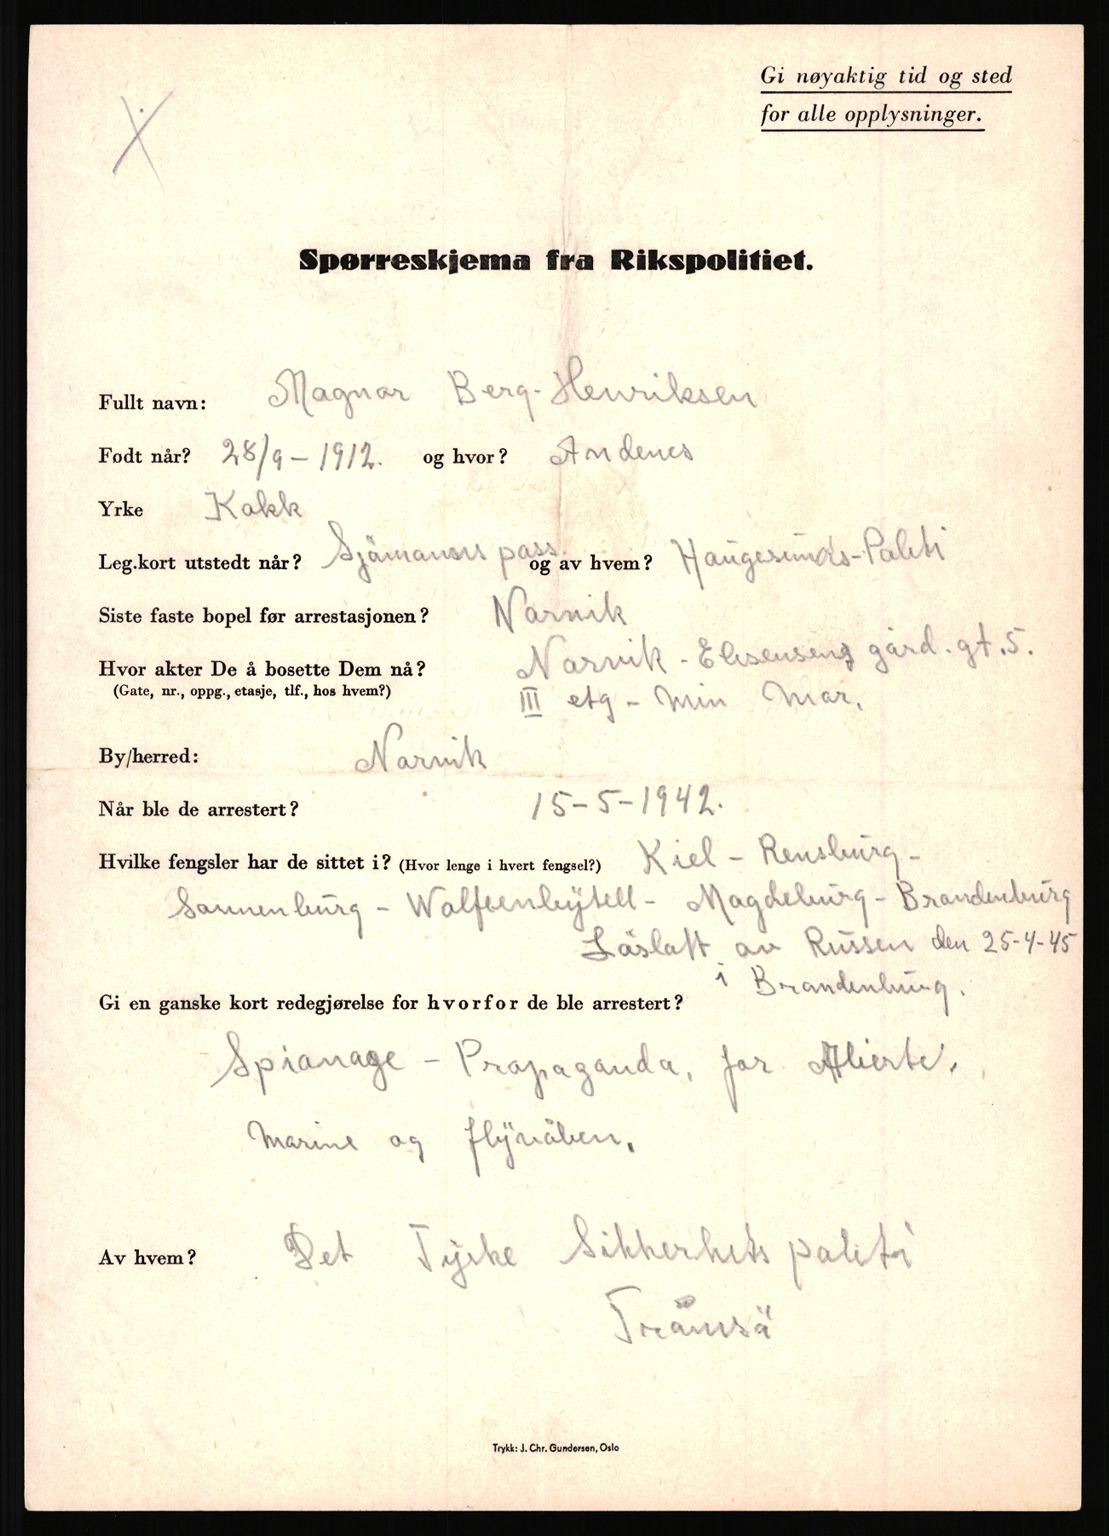 Gi nøyaktig tid og sted
for alle opplysninger.
Spørreskjema fra Rikspolitiet.
Fullt navn: Magnar Berg-Henriksen
Født når? 28/9 - 1912. og hvor? Andenes
Yrke Kokk
Leg.kort utstedt når? Sjömanns pass. og av hvem? Haugesunds-Politi
Siste faste bopel før arrestasjonen? Narvik
Hvor akter De å bosette Dem nå? Narvik - Elisenseng gård. gt. 5.
(Gate, nr., oppg., etasje, tlf., hos hvem?) III etg - Min Mor.
By/herred: Narvik
Når ble de arrestert? 15-5-1942.
Hvilke fengsler har de sittet i? (Hvor lenge i hvert fengsel?) Kiel - Rensburg -
Sonnenburg - Wolfeenbytell - Magdeburg - Brandenburg
Löslatt av Russen den 25-4-45
i Brandenburg.
Gi en ganske kort redegjørelse for hvorfor de ble arrestert?
Spionage - Propaganda, for Alierte,
Marine og flyvåben.
Av hvem? Det Tyske Sikkerhets politi
Tromsö
Trykk: J. Chr. Gundersen, Oslo